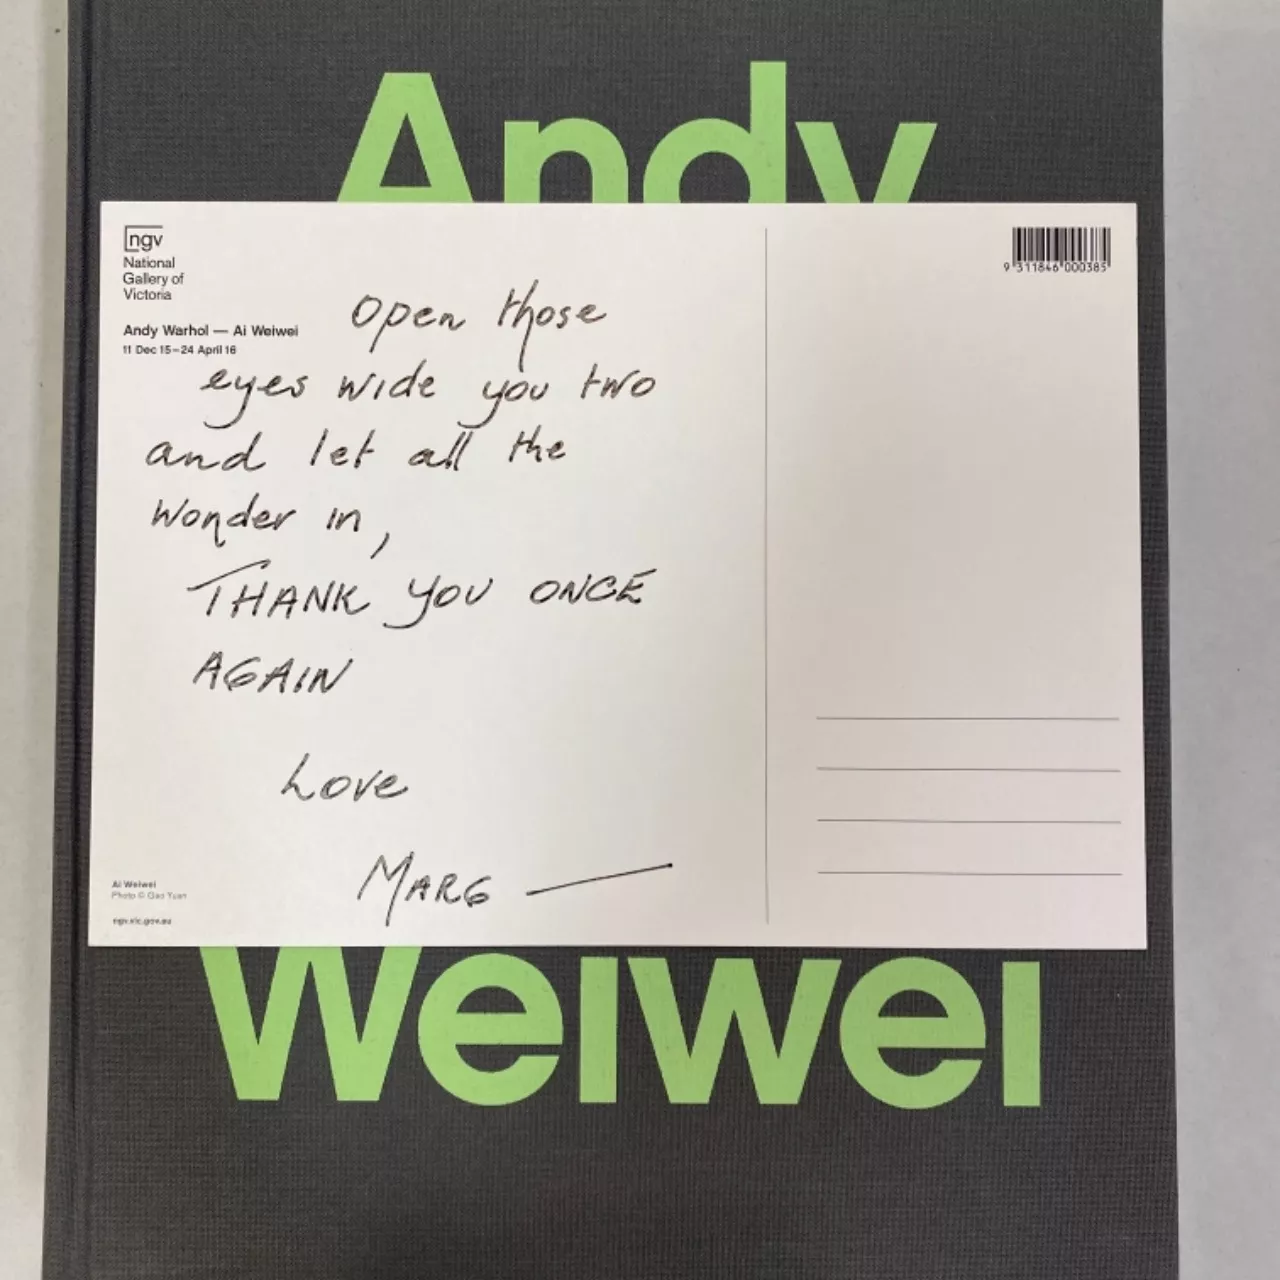 Andy
ngv
National
Gallery of
Victoria
Andy Warhol — Ai Weiwei
11 Dec 15–24 April 16
9 311846 000385
Open those
eyes wide you two
and let all the
wonder in,
THANK YOU ONCE
AGAIN
Love
MARG
Ai Weiwei
Photo © Gao Yuan
ngv.vic.gov.au
Weiwei